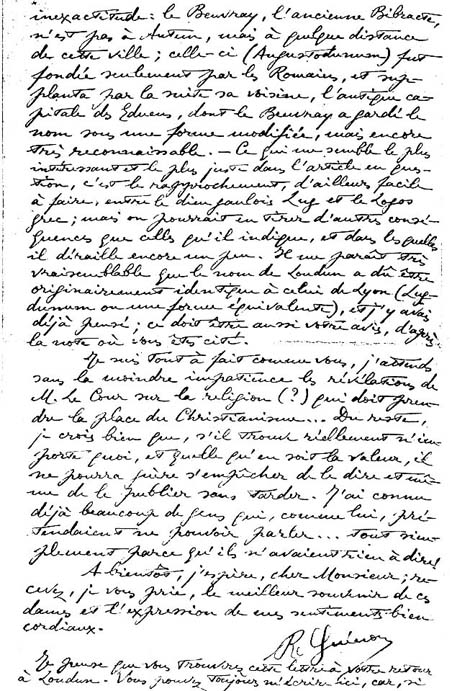 inexactitude : le Beuvray, l'ancienne Bibracte,
n'est pas à Autun, mais à quelque distance
de cette ville ; celle-ci (Augustodunum) fut
fondée seulement par les Romains, et sup-
planta par la suite sa voisine, l'antique ca-
pitale des Eduens, dont le Beuvray a gardé le
nom sous une forme modifiée, mais encore
très reconnaissable. – Ce qui me semble le plus
intéressant et le plus juste dans l'article en ques-
tion, c'est le rapprochement, d'ailleurs facile
à faire, entre le dieu gaulois Lug et le Logos
grec ; mais on pourrait en tirer d'autres consé-
quences que celles qu'il indique, et dans lesquelles
il déraille encore un peu. Il me paraît très
vraisemblable que le nom de Loudun a dû être
originairement identique à celui de Lyon (Lug-
dunum ou une forme équivalente), et j'y avais
déjà pensé ; ce doit être aussi votre avis, d'après
la note où vous êtes cité.
Je suis tout à fait comme vous, j'attends
sans la moindre impatience les révélations de
M. Le Cour sur la religion (?) qui doit pren-
dre la place du Christianisme... Du reste,
je crois bien que, s'il trouve réellement n'im-
porte quoi, et quelle qu'en soit la valeur, il
ne pourra guère s'empêcher de le dire et mê-
me de le publier sans tarder. J'ai connu
déjà beaucoup de gens qui, comme lui, pré-
tendaient ne pouvoir parler... tout sim-
plement parce qu'ils n'avaient rien à dire !
A bientôt, j'espère, cher Monsieur ; re-
cevez, je vous prie, le meilleur souvenir de ces
dames et l'expression de mes sentiments bien
cordiaux.
R. Guénon
Je pense que vous trouverez cette lettre à votre retour
à Loudun. Vous pouvez toujours m'écrire ici, car, si